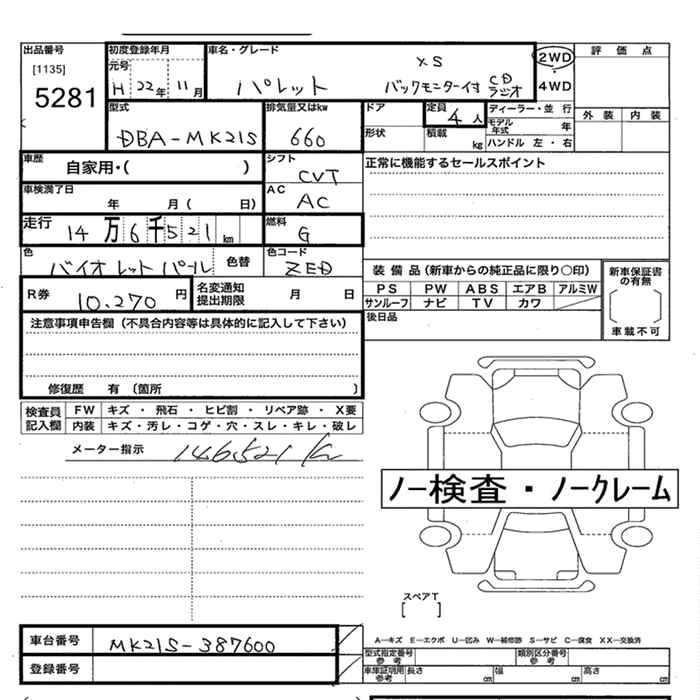 出品番号 初度登録年月 車名・グレード 評価点
[1135] 元号 XS 2WD
5281 H 22年 11月 パレット バックモニター付 CDラジオ 4WD
型式 排気量又はkw ドア 定員 4人 ディーラー・並行 外装 内装
DBA-MK21S 660 形状 積載 kg モデル年式 年
ハンドル 左・右
車歴 自家用・( ) シフト CVT 正常に機能するセールスポイント
車検満了日 年 月( 日) AC AC
走行 14万6千521km 燃料 G
色 バイオレットパール 色替 色コード ZED 装備品(新車からの純正品に限り○印) 新車保証書の有無
R券 10,270円 名変通知提出期限 月 日 PS PW ABS エアB アルミW
サンルーフ ナビ TV カワ
注意事項申告欄(不具合内容等は具体的に記入して下さい) 後日品 車載不可
修復歴 有(箇所 )
検査員記入欄 FW キズ・飛石・ヒビ割・リペア跡・X要
内装 キズ・汚レ・コゲ・穴・スレ・キレ・破レ
メーター指示 146,521km
ノー検査・ノークレーム
スペアT
[ ]
A-キズ E-エクボ U-凹み W-補修跡 S-サビ C-腐食 XX-交換済
車台番号 MK21S-387600 型式指定番号 参考 類別区分番号 参考
登録番号 車庫証明用 参考 長さ cm 幅 cm 高さ cm